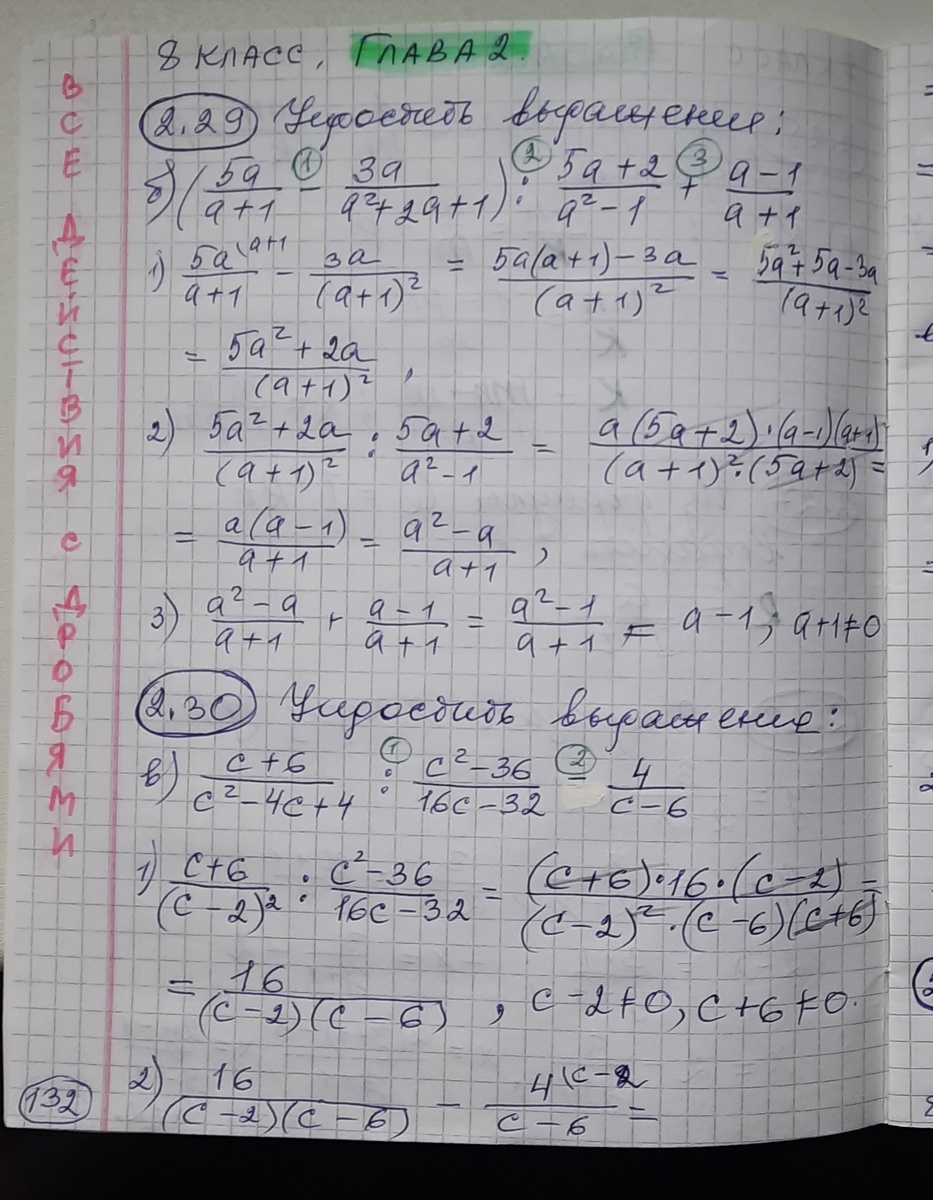 8 КЛАСС, ГЛАВА 2.
2.29 Упростить выражение:
б) (5a/(a+1) ① − 3a/(a²+2a+1)) ② : (5a+2)/(a²−1) ③ + (a−1)/(a+1)
1) 5a\a+1/(a+1) − 3a/(a+1)² = (5a(a+1)−3a)/(a+1)² = (5a²+5a−3a)/(a+1)²
= (5a²+2a)/(a+1)²,
2) (5a²+2a)/(a+1)² : (5a+2)/(a²−1) = (a(5a+2)·(a−1)(a+1))/((a+1)²·(5a+2)) =
= a(a−1)/(a+1) = (a²−a)/(a+1),
3) (a²−a)/(a+1) + (a−1)/(a+1) = (a²−1)/(a+1) = a−1, a+1≠0
2.30 Упростить выражение:
в) (c+6)/(c²−4c+4) ① : (c²−36)/(16c−32) ② − 4/(c−6)
1) (c+6)/(c−2)² : (c²−36)/(16c−32) = ((c+6)·16·(c−2))/((c−2)²·(c−6)(c+6)) =
= 16/((c−2)(c−6)), c−2≠0, c+6≠0.
2) 16/((c−2)(c−6)) − 4\c−2/(c−6) =
132
ВСЕ ДЕЙСТВИЯ С ДРОБЯМИ